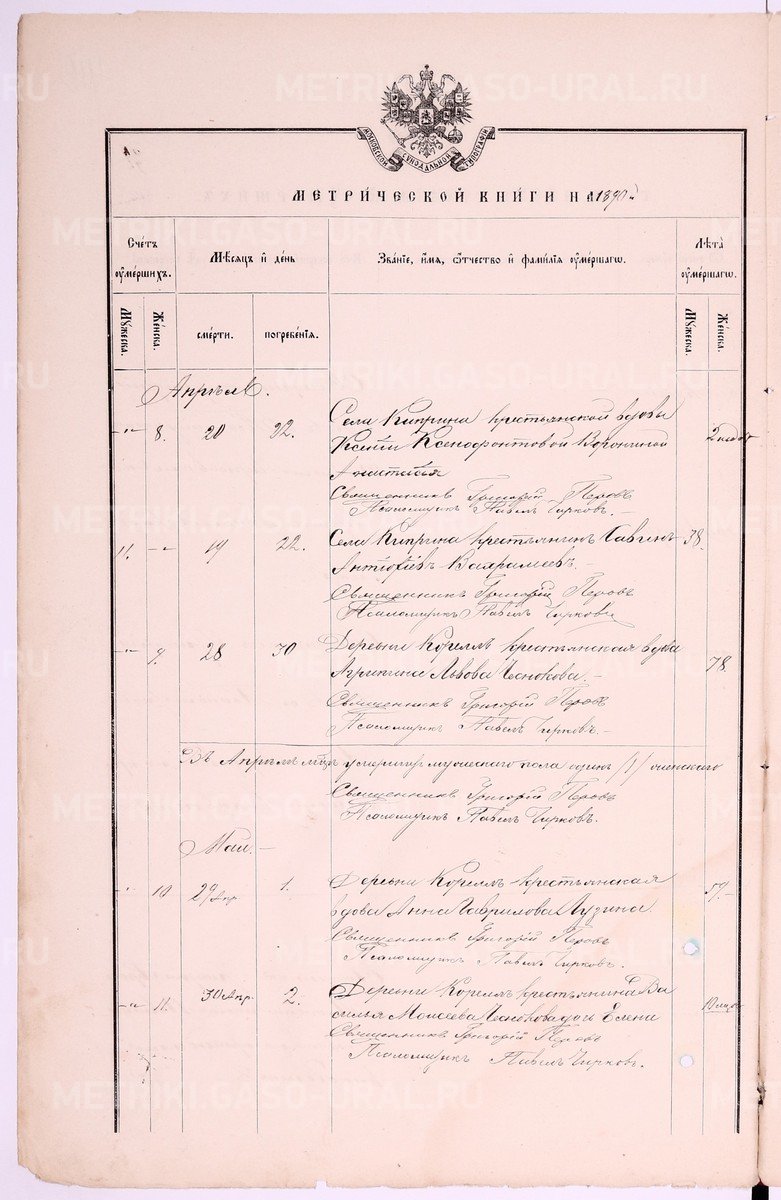 МОСКОВСКОЙ СѴНОДАЛЬНОЙ ТИПОГРАФІИ
МЕТРИ́ЧЕСКОЙ КНИ́ГИ НА 1890 г.
Счетъ ѹме́ршихъ.
Мѣсяцъ и҆ де́нь
Зва́нїе, и҆́мѧ, ѻ҆́тчество и҆ фами́лїѧ ѹме́ршагѡ.
Лѣта̀ ѹме́ршагѡ.
Мꙋжеска.
Же́нска.
сме́рти.
погребе́нїѧ.
Мꙋжеска.
Же́нска.
Апрѣль.
-"- 8. 20 22. Села Киприна крестьянской вдовы
Ксеніи Ксенофонтовой Ворониной
Священникъ Григорій Перовъ
Псаломщикъ Павелъ Чирковъ.
11. -"- 19 22. Села Киприна крестьянинъ Савинъ 38.
Антоніевъ Вахрамеевъ.
Священникъ Григорій Перовъ
Псаломщикъ Павелъ Чирковъ
-"- 9. 28 30 Деревни Корелъ крестьянская вдова
Агрипина Львова Чеснокова. 78.
Священникъ Григорій Перовъ
Псаломщикъ Павелъ Чирковъ.
Въ Апрѣлѣ мцѣ умерло мужескаго пола одинъ /1/ женскаго
Священникъ Григорій Перовъ
Псаломщикъ Павелъ Чирковъ.
Май.
10 29 Апр 1. Деревни Корелъ крестьянская 57.
вдова Анна Гаврилова Лузина.
Священникъ Григорій Перовъ
Псаломщикъ Павелъ Чирковъ.
-"- 11. 30 Апр. 2. Деревни Корелъ крестьянина Ва
силья Моисеева Чеснокова дочь Елена
Священникъ Григорій Перовъ
Псаломщикъ Павелъ Чирковъ.
METRIKI.GASO-URAL.RU